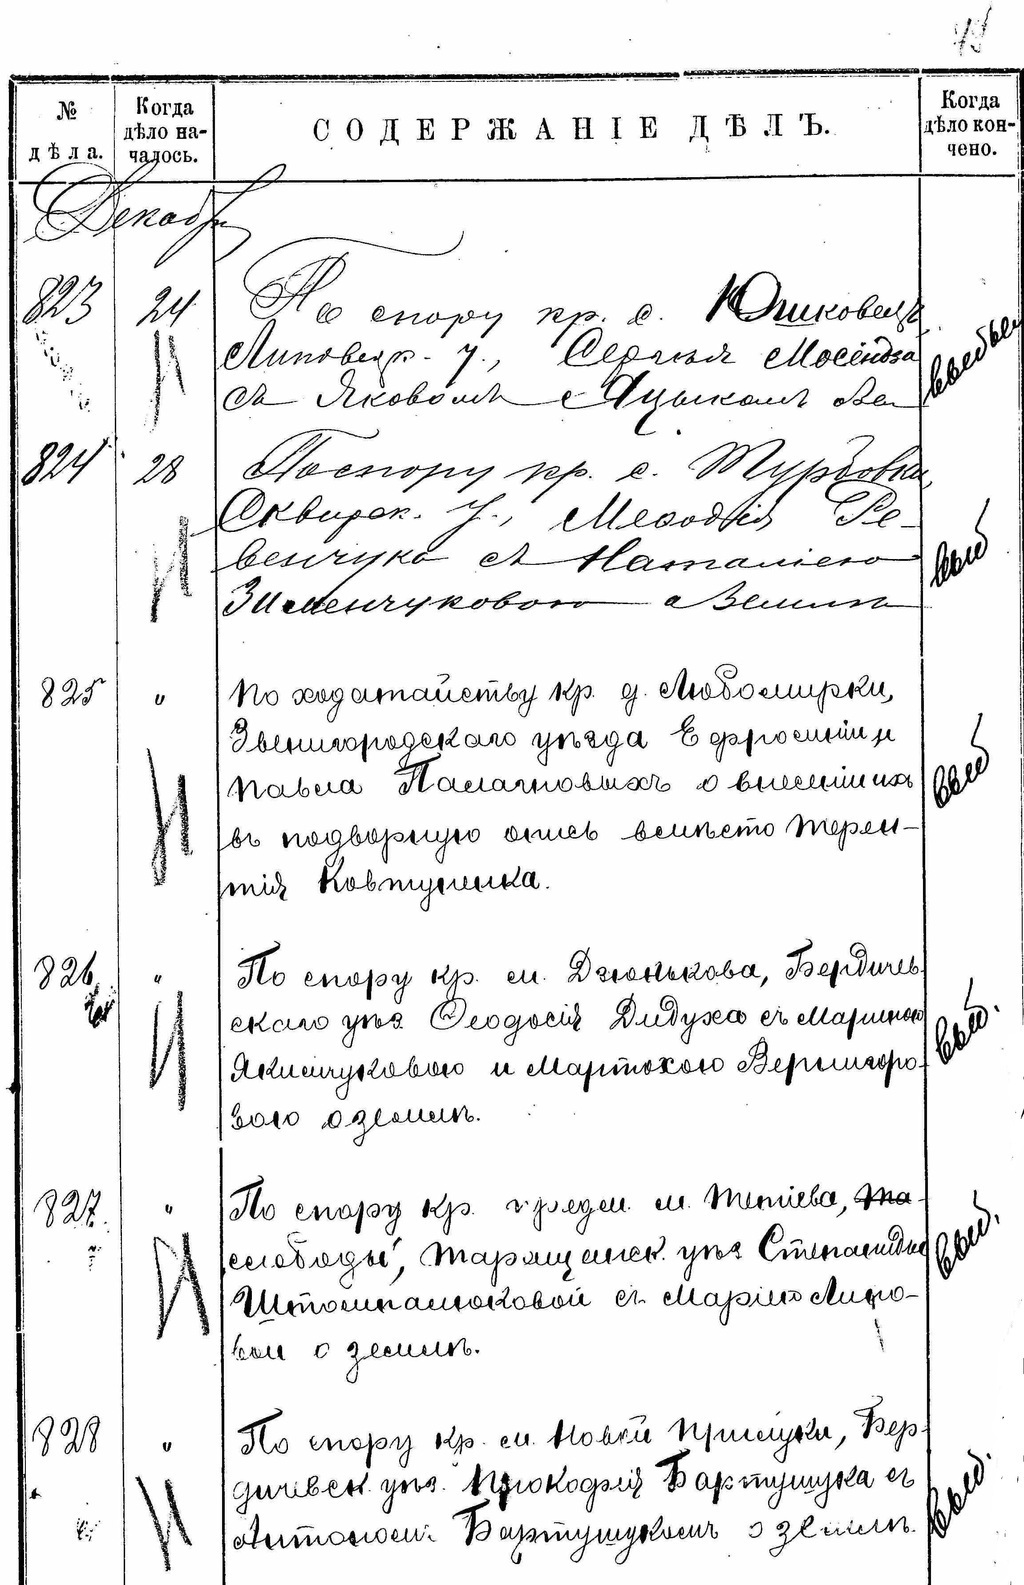 № дѣла.
Когда дѣло началось.
СОДЕРЖАНІЕ ДѢЛЪ.
Когда дѣло кончено.
Декабр
823 24 По спору кр. с. Юшковецъ
Липовецк. у., Сергѣя Мосіндза
съ Яковомъ Яцыкомъ
выбыл
824 28 По спору кр. с. Турбовки
Сквирск. у., Меѳодія Ре-
венчука съ Наталіею
Зименчуковою о землѣ
выб
825 " По ходатайству кр. д. Любомирки,
Звенигородскаго уѣзда Ефросиніи и
Павла Палагновыхъ о внесеніи ихъ
въ подворную опись вмѣсто Терен-
тія Ковтуненка.
выб
826 " По спору кр. м. Дзюнькова, Бердичев-
скаго уѣз. Ѳеодосія Дидуха съ Мариною
Якимчуковою и Мартохою Вернигоро-
вою о землѣ.
выб.
827. " По спору кр. предм. м. Тетіева,
слободы, Таращанск. уѣз Степаниды
Штомпалюковой съ Маріею Липо-
вой о землѣ.
выб.
828 " По спору кр. м. Новой Прилуки, Бер-
дичевск. уѣз. Прокофія Бартущука съ
Антономъ Бартущукомъ о землѣ.
выб.